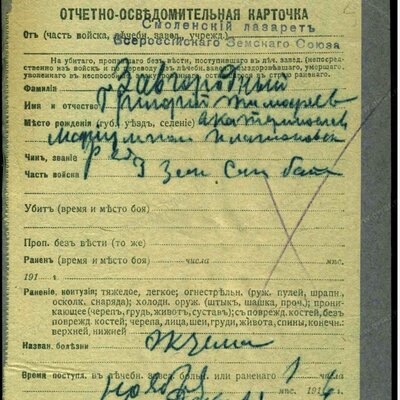 ОТЧЕТНО-ОСВѢДОМИТЕЛЬНАЯ КАРТОЧКА
Смоленскій лазаретъ
Отъ (часть войска, лѣчебн. завед., учрежд.)
Всероссійскаго Земскаго Союза
На убитаго, пропавшаго безъ вѣсти, поступившаго въ лѣч. завед. (непосред-
ственно изъ войскъ и
Фамилія Завгородный
Имя и отчество Григорій Тимофеев
Мѣсто рожденія (губ., уѣздъ, селеніе) Екатеринослав
Мариупольск
Чинъ, званіе ряд
Часть войска 3 бат
Убитъ (время и мѣсто боя)
Проп. безъ вѣсти (то же)
Раненъ (время и мѣсто боя) числа мѣс.
191 г.
Раненіе, контузія: тяжелое, легкое; огнестрѣльн. (руж. пулей, шрапн.,
осколк. снаряда); холодн. оруж. (штыкъ, шашка, проч.); прони-
кающее (черепъ, грудь, животъ, суставъ); съ поврежд. костей, безъ
поврежд. костей; черепа, лица, шеи, груди, живота, спины, конечн.:
верхней, нижней
Назван. болѣзни экзема
Время поступл. въ лѣчебн. завед. больн. или раненаго 1
мѣс. 191 6 г.